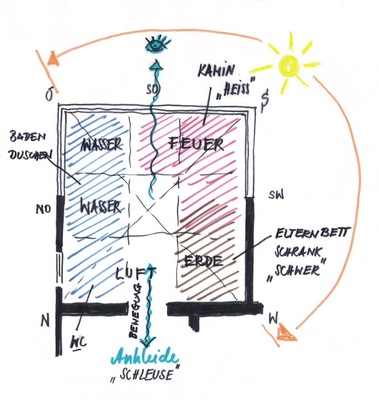 KAMIN
„HEISS"
O
SO
S
BADEN
DUSCHEN
WASSER
FEUER
NO
WASSER
SW
ELTERNBETT
SCHRANK
„SCHWER"
ERDE
LUFT
BEWEGUNG
N
WC
W
Ankleide
„SCHLEUSE"